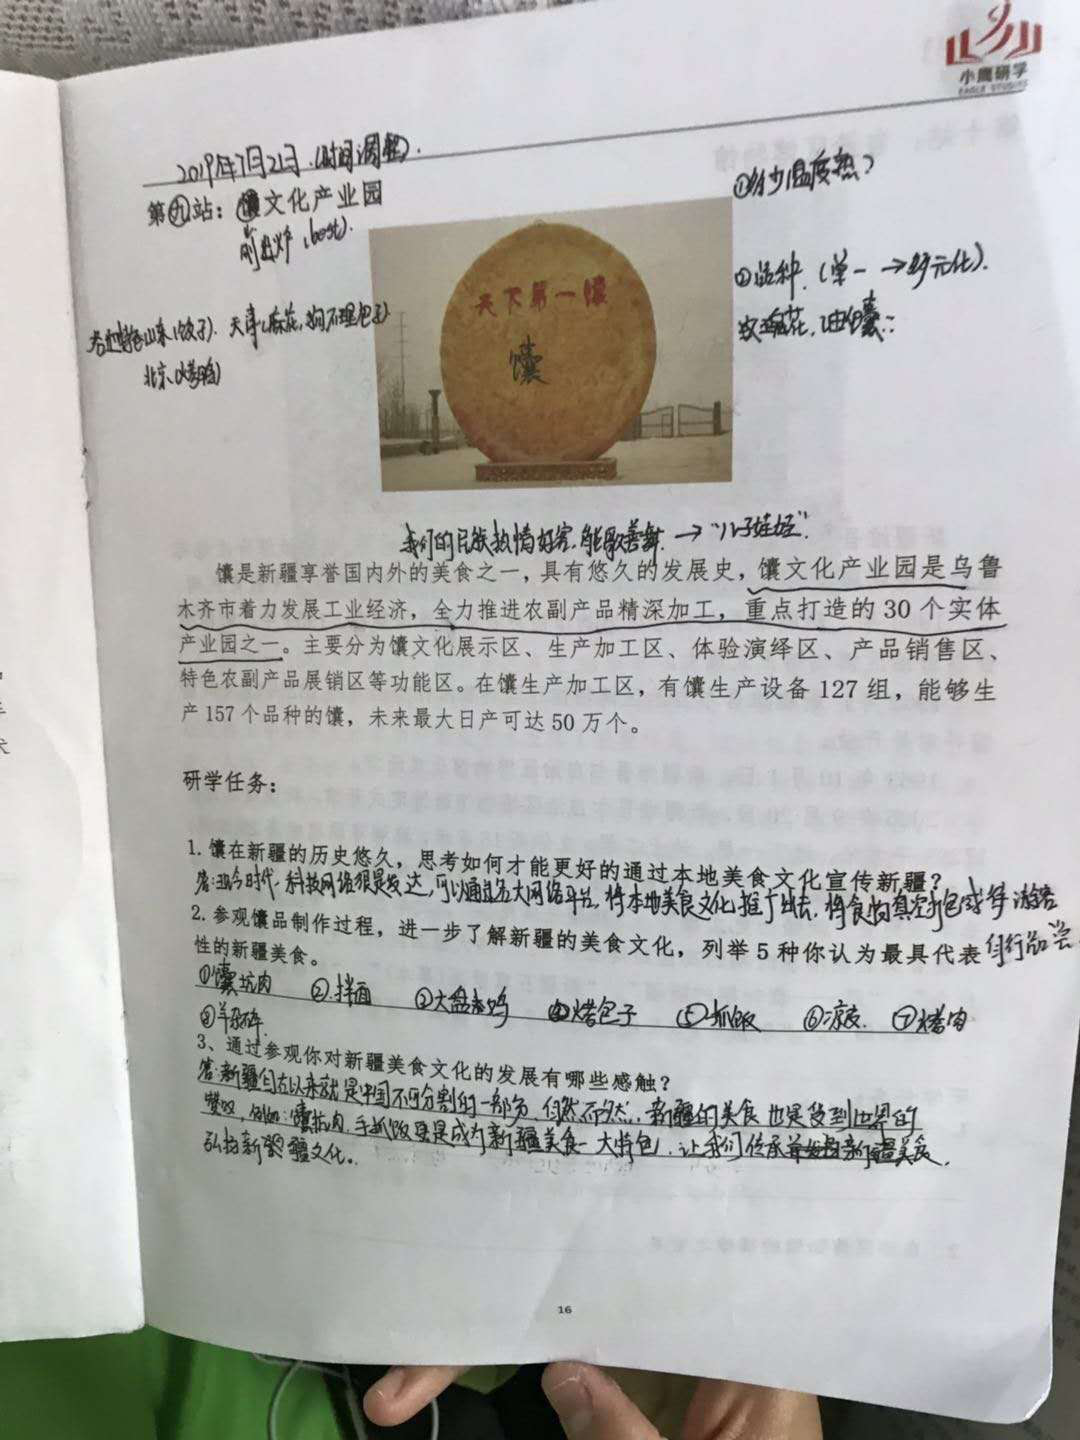 小鹰研学
EAGLE STUDIES
2019年7月21日.(时间调整).
第九站：馕文化产业园
①多少温度热？
②品种.(单一→多元化).
玫瑰花,油馕
各地特色山东(饺子).天津(麻花,狗不理包子)
北京(烤鸭)
天下第一馕
馕
我们的民族热情好客.能歌善舞.→"儿子娃娃".
馕是新疆享誉国内外的美食之一，具有悠久的发展史，馕文化产业园是乌鲁
木齐市着力发展工业经济，全力推进农副产品精深加工，重点打造的 30 个实体
产业园之一。主要分为馕文化展示区、生产加工区、体验演绎区、产品销售区、
特色农副产品展销区等功能区。在馕生产加工区，有馕生产设备 127 组，能够生
产 157 个品种的馕，未来最大日产可达 50 万个。
研学任务：
1. 馕在新疆的历史悠久，思考如何才能更好的通过本地美食文化宣传新疆？
答:现今时代.科技网络很是发达,可以通过各大网络平台,将本地美食文化推广出去,将食物真空打包或导游客
2. 参观馕品制作过程，进一步了解新疆的美食文化，列举 5 种你认为最具代表
自行品尝
性的新疆美食。
①馕坑肉 ②.拌面 ③大盘鸡 ④烤包子 ⑤抓饭 ⑥凉皮. ⑦烤肉
⑧羊杂碎.
3、通过参观你对新疆美食文化的发展有哪些感触？
答:新疆自古以来就是中国不可分割的一部分,自然而然.新疆的美食也是受到世界的
赞叹,例如:馕坑肉.手抓饭更是成为新疆美食一大特色,让我们传承新疆美食.
弘扬新疆文化。
16